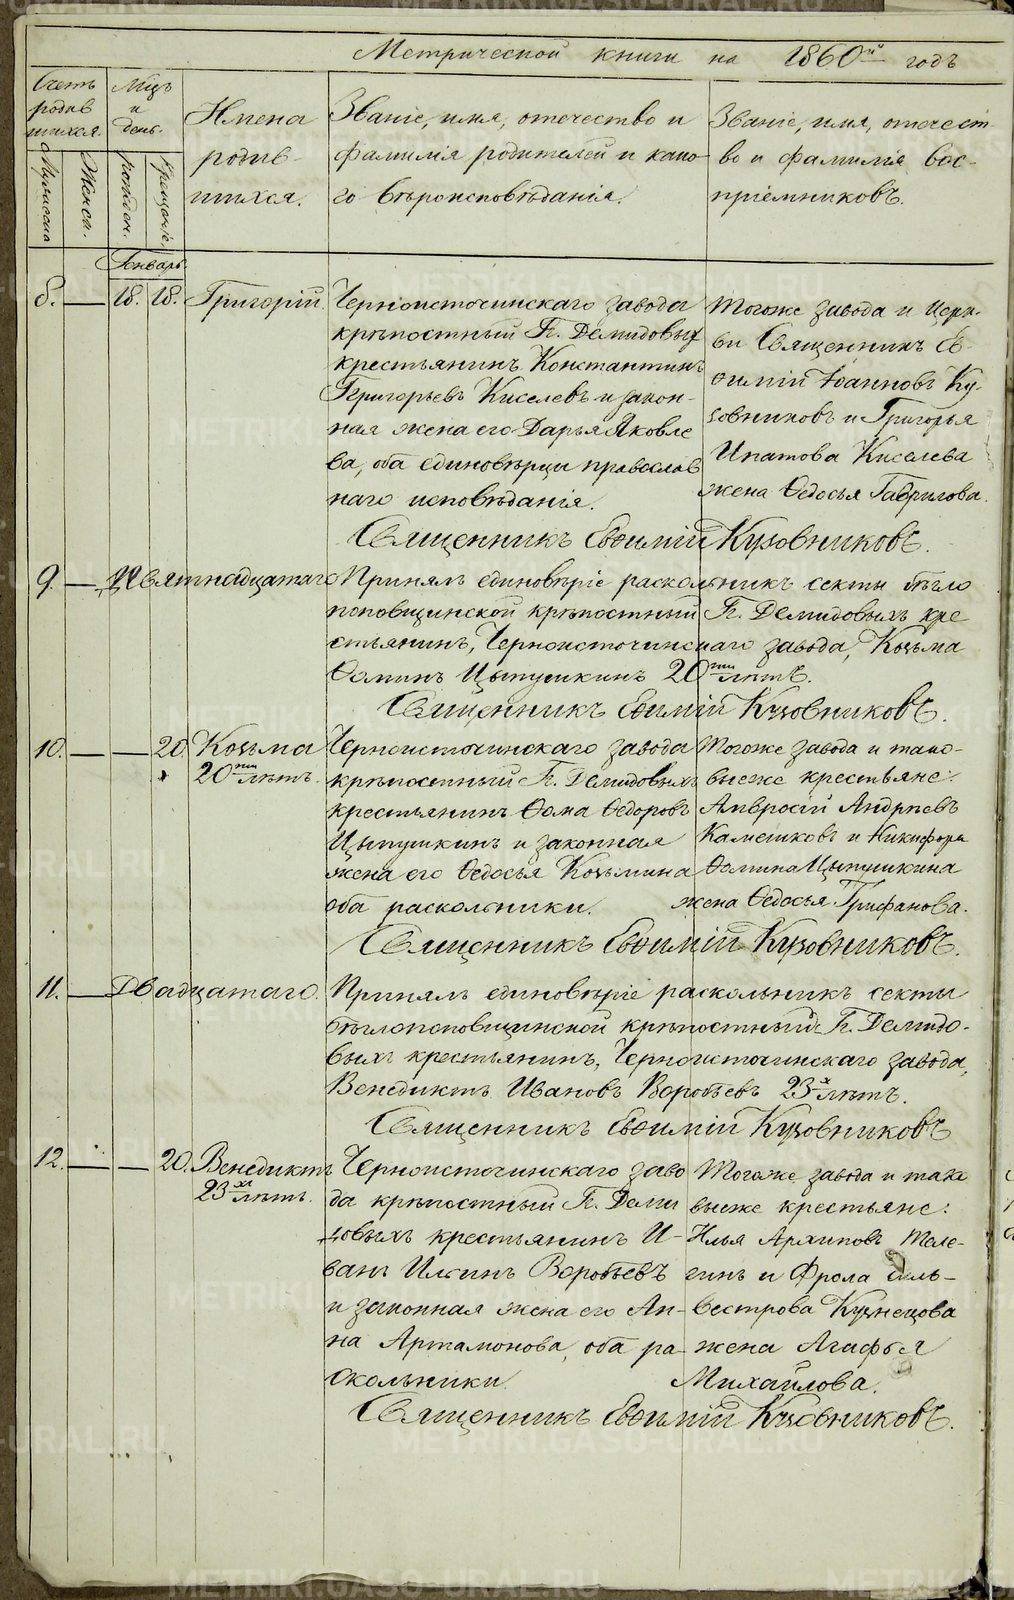 Метрической книги на 1860й годъ
Счетъ родившихся.
Мѣсяцъ и день.
Имена родившихся.
Званіе, имя, отечество и фамилія родителей и какого вѣроисповѣданія.
Званіе, имя, отечество и фамилія воспріемниковъ.
Мужеска
Женска.
рожден.
крещенія
Генварь.
8. — 18. 18. Григорій.
Черноисточинскаго завода
крѣпостный Г. Демидовых
крестьянинъ Константинъ
Григорьевъ Киселевъ и закон-
ная жена его Дарья Яковле
ва, оба единовѣрцы православ
наго исповѣданія.
Тогоже завода и церк-
ви Священникъ Ев-
ѳимій Іоанновъ Ку-
зовниковъ и Григорья
Ипатова Киселева
жена Ѳедосья Гаврилова.
Священникъ Евѳимій Кузовниковъ.
9. — Девятнадцатаго Принялъ единовѣріе раскольникъ секты бѣгло
поповщинской крѣпостный Г. Демидовыхъ кре
стьянинъ, Черноисточинскаго завода, Козьма
Ѳоминъ Цыпушкинъ 20ти лѣтъ.
Священникъ Евѳимій Кузовниковъ.
10. — — 20. Козьма
20ти лѣтъ.
Черноисточинскаго завода
крѣпостный Г. Демидовыхъ
крестьянинъ Ѳома Ѳедоровъ
Цыпушкинъ и законная
жена его Ѳедосья Козьмина
оба раскольники.
Тогоже завода и тако-
выеже крестьяне:
Амвросій Андреевъ
Камешковъ и Никифора
Ѳомина Цыпушкина
жена Ѳедосья Трифанова.
Священникъ Евѳимій Кузовниковъ.
11. — Двадцатаго. Принялъ единовѣріе раскольникъ секты
бѣглопоповщинской крѣпостный Г. Демидо-
выхъ крестьянинъ, Черноисточинскаго завода,
Венедиктъ Ивановъ Воробьевъ 23х лѣтъ.
Священникъ Евѳимій Кузовниковъ
12. — — 20. Венедиктъ
23хъ лѣтъ.
Черноисточинскаго заво
да крѣпостный Г. Деми
довыхъ крестьянинъ И-
ванъ Илсинъ Воробьевъ
и законная жена его Ан-
на Артамонова, оба ра-
скольники.
Тогоже завода и тако
выеже крестьяне:
Илья Архиповъ Теле-
гинъ и Фрола Силь-
вестрова Кузнецова
жена Агафья
Михайлова.
Священникъ Евѳимій Кузовниковъ.
METRIKI.GASO-URAL.RU